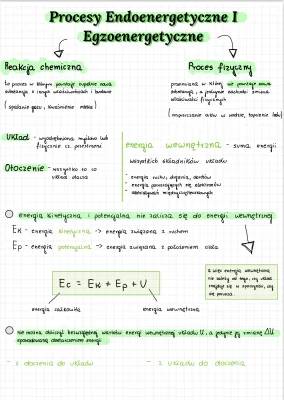 Procesy Endoenergetyczne I
Egzoenergetyczne
Reakcja chemiczna
Proces fizyczny
to proces w którym powstaje zupełnie nowa
substancja o innych właściwościach i budowie
( spalanie gazu , kwaśnienie mleka )
przemiana w której nie powstaje nowa
substancja , a jedynie zachodzi zmiana
właściwości fizycznych
( rozpuszczanie cukru w wodzie, topnienie lodu )
Układ - wyodrębniona myślowo lub
fizycznie cz. przestrzeni
Otoczenie - wszystko to co
układ otacza
energia wewnętrzna - suma energii
wszystkich składników układu
- energia ruchu, drgania, obrotów
- energia poruszających się elektronów
- oddziaływań międzycząsteczkowych
energia kinetyczna i potencjalna nie zalicza się do energii wewnętrznej
Ek - energia kinetyczna → energia związana z ruchem
Ep - energia potencjalna → energia związana z położeniem ciała
Ec = Ek + Ep + U
energia całkowita
energia wewnętrzna
a więc energia wewnętrzna
nie zależy od tego, czy układ
znajduje się w spoczynku, czy
się porusza.
nie można obliczyć bezwzględnej wartości energii wewnętrznej układu U, a jedynie jej zmianę ΔU
spowodowaną dostarczeniem energii
- z otoczenia do układu
- z układu do otoczenia